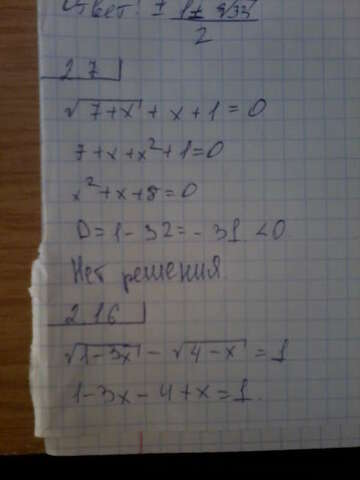 Ответ: ± (1 ± √33)/2
2.7
√(7+x) + x + 1 = 0
7 + x + x² + 1 = 0
x² + x + 8 = 0
D = 1 - 32 = - 31 < 0
Нет решения
2.16
√(1-3x) - √(4-x) = 1
1 - 3x - 4 + x = 1.